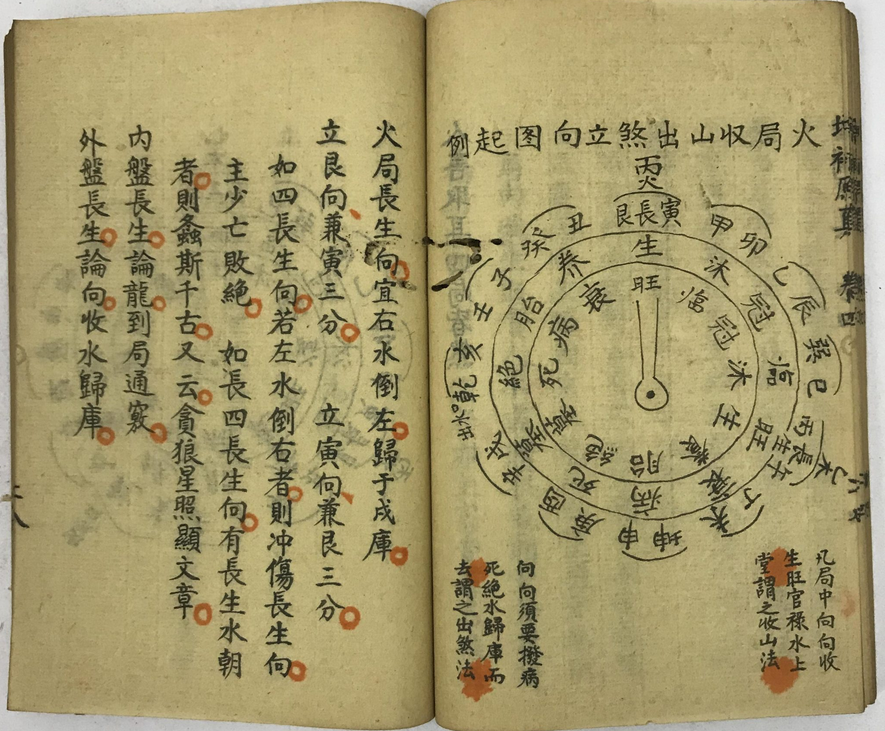 火局收山出煞立向图起例
丙火
寅長艮
甲卯
乙辰
巽巳
丙午長生
丁未
坤申
庚酉
辛戌
乾亥
壬子
癸丑
生
沐
冠
臨
旺
衰
病
死
墓
絕
胎
養
旺
臨
冠
沐
生
養
胎
絕
墓
死
病
衰
凡局中向向收
生旺官祿水上
堂謂之收山法
向向須要撥病
死絕水歸庫而
去謂之出煞法
火局長生向宜右水倒左歸于戌庫
立艮向兼寅三分 立寅向兼艮三分
如四長生向若左水倒右者則冲傷長生向
主少亡敗絕 如長四長生向有長生水朝
者則螽斯千古又云貪狼星照顯文章
內盤長生論龍到局通竅
外盤長生論向收水歸庫